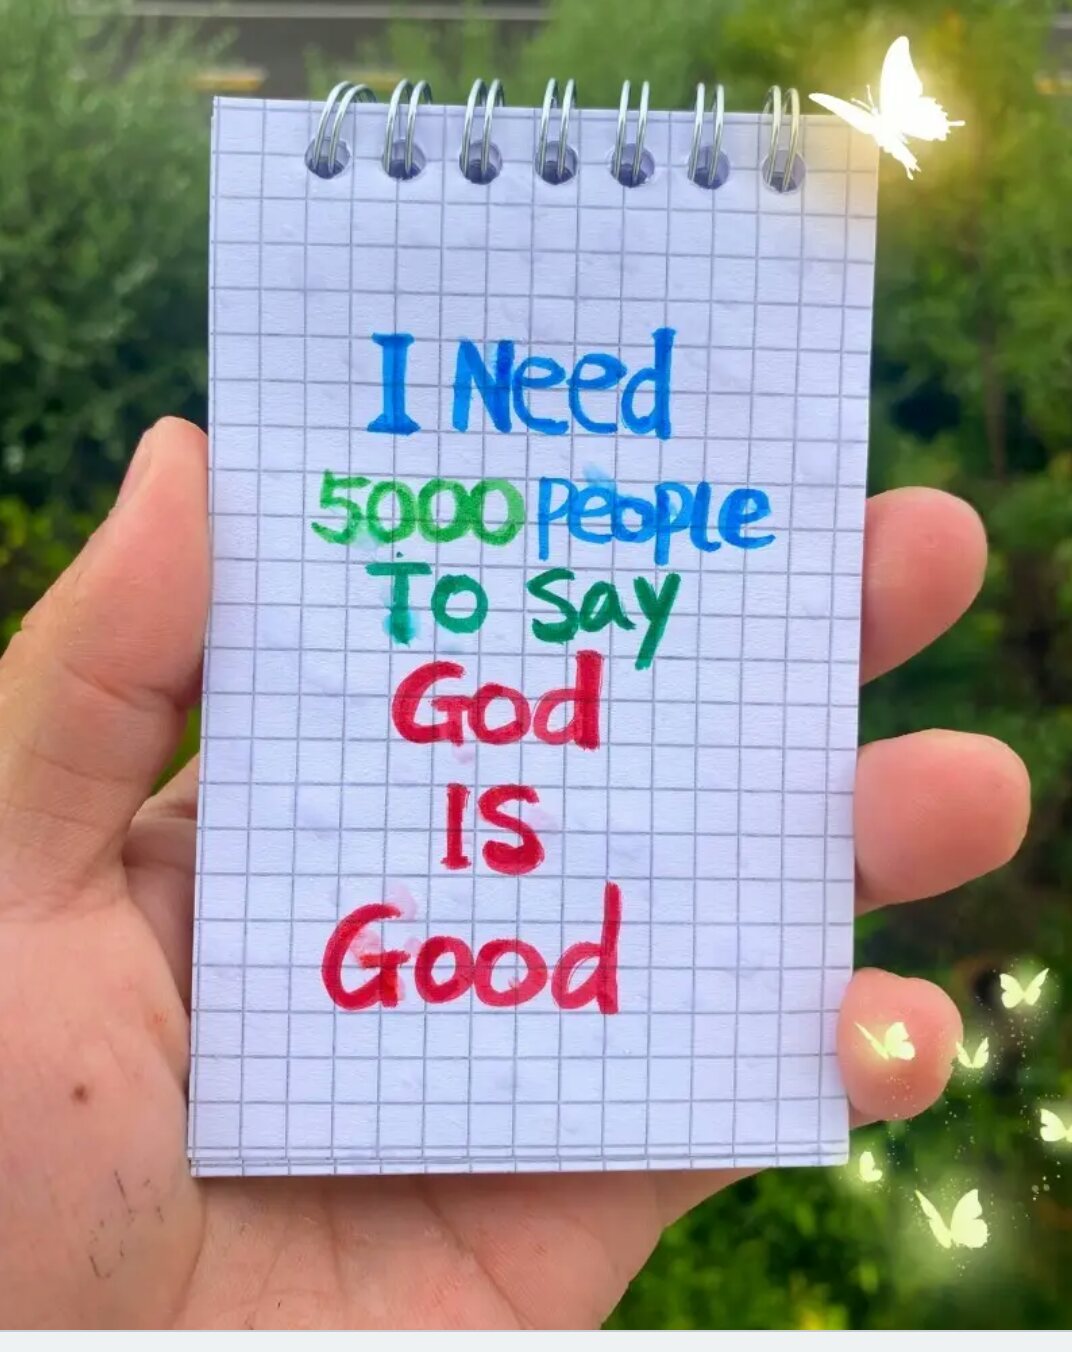 I Need
5000 people
To Say
God
IS
Good